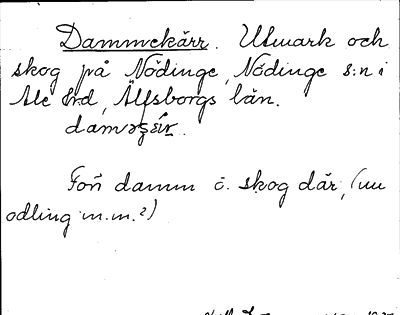 Dammekärr. Utmark och
skog på Nödinge, Nödinge s:n i
Ale hrd, Älfsborgs län.
Förr damm o. skog där, (nu
odling m.m.?)